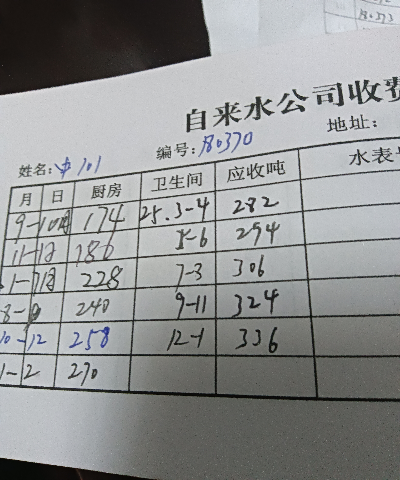 自来水公司收费
姓名: 中101 编号: B0370 地址:
月 日 厨房 卫生间 应收吨 水表
9-10月 174 25.3-4 282
11-12 186 5-6 294
228 7-3 306
240 9-11 324
10-12 258 12-1 336
1-2 270